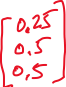 0.25
0.5
0.5